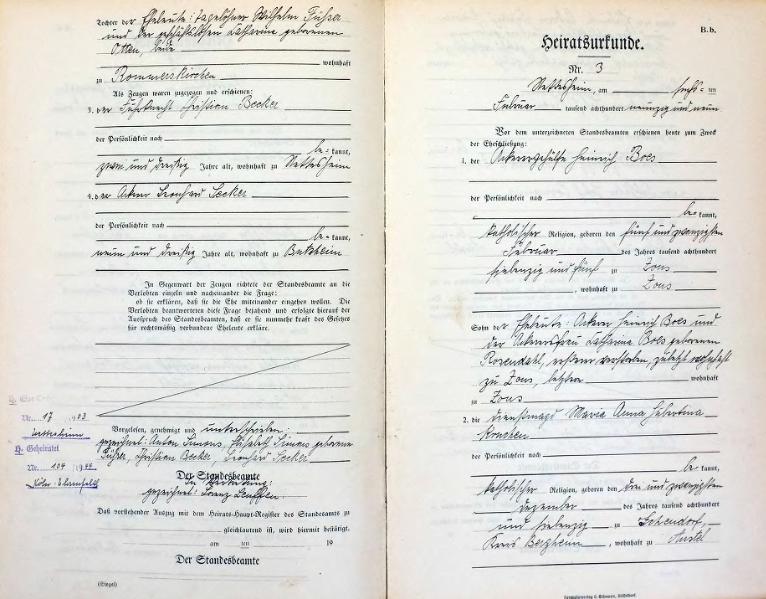 Tochter der Eheleute: Tagelöhner Wilhelm
und der geschäftslosen Catharina geborenen
Otten, beide
wohnhaft
zu Rommerskirchen
Als Zeugen waren zugezogen und erschienen:
3. der Fuhrknecht Christian Becker
der Persönlichkeit nach
be- kannt,
zwei und dreißig Jahre alt, wohnhaft zu Nettesheim
4. der Ackerer Leonhard
der Persönlichkeit nach
be- kannt,
neun und dreißig Jahre alt, wohnhaft zu Butzheim
In Gegenwart der Zeugen richtete der Standesbeamte an die
Verlobten einzeln und nacheinander die Frage:
ob sie erklären, daß sie die Ehe miteinander eingehen wollen. Die
Verlobten beantworteten diese Frage bejahend und erfolgte hierauf der
Ausspruch des Standesbeamten, daß er sie nunmehr kraft des Gesetzes
für rechtmäßig verbundene Eheleute erkläre.
Nr. 17
Vorgelesen, genehmigt und unterschrieben:
gezeichnet: Anton Simons, Elisabeth Simons geborene
Christian Becker, Leonhard
Geheiratet
Nr. 104
Der Standesbeamte
In Vertretung:
gezeichnet: Franz
Daß vorstehender Auszug mit dem Heirats-Haupt-Register des Standesamts zu
gleichlautend ist, wird hiermit bestätigt.
am ten 19
Der Standesbeamte
(Siegel)
B.b.
Heiratsurkunde.
Nr. 3
Nettesheim, am sechs- ten
Februar tausend achthundert neunzig und neun
Vor dem unterzeichneten Standesbeamten erschienen heute zum Zweck
der Eheschließung:
1. der Ackerergehülfe Heinrich Boes
der Persönlichkeit nach
be- kannt,
katholischer Religion, geboren den fünf und zwanzigsten
Februar des Jahres tausend achthundert
siebenzig und fünf zu Zons
, wohnhaft zu Zons
Sohn der Eheleute: Ackerer Heinrich Boes und
der Ackersfrau Catharina Boes geborenen
Rosendahl, ersterer verstorben, zuletzt wohnhaft
zu Zons, letztere wohnhaft
zu Zons
2. die Dienstmagd Maria Anna Hubertina
der Persönlichkeit nach
be- kannt,
katholischer Religion, geboren den drei und zwanzigsten
Dezember des Jahres tausend achthundert
und siebenzig zu
Kreis Bergheim, wohnhaft zu Anstel